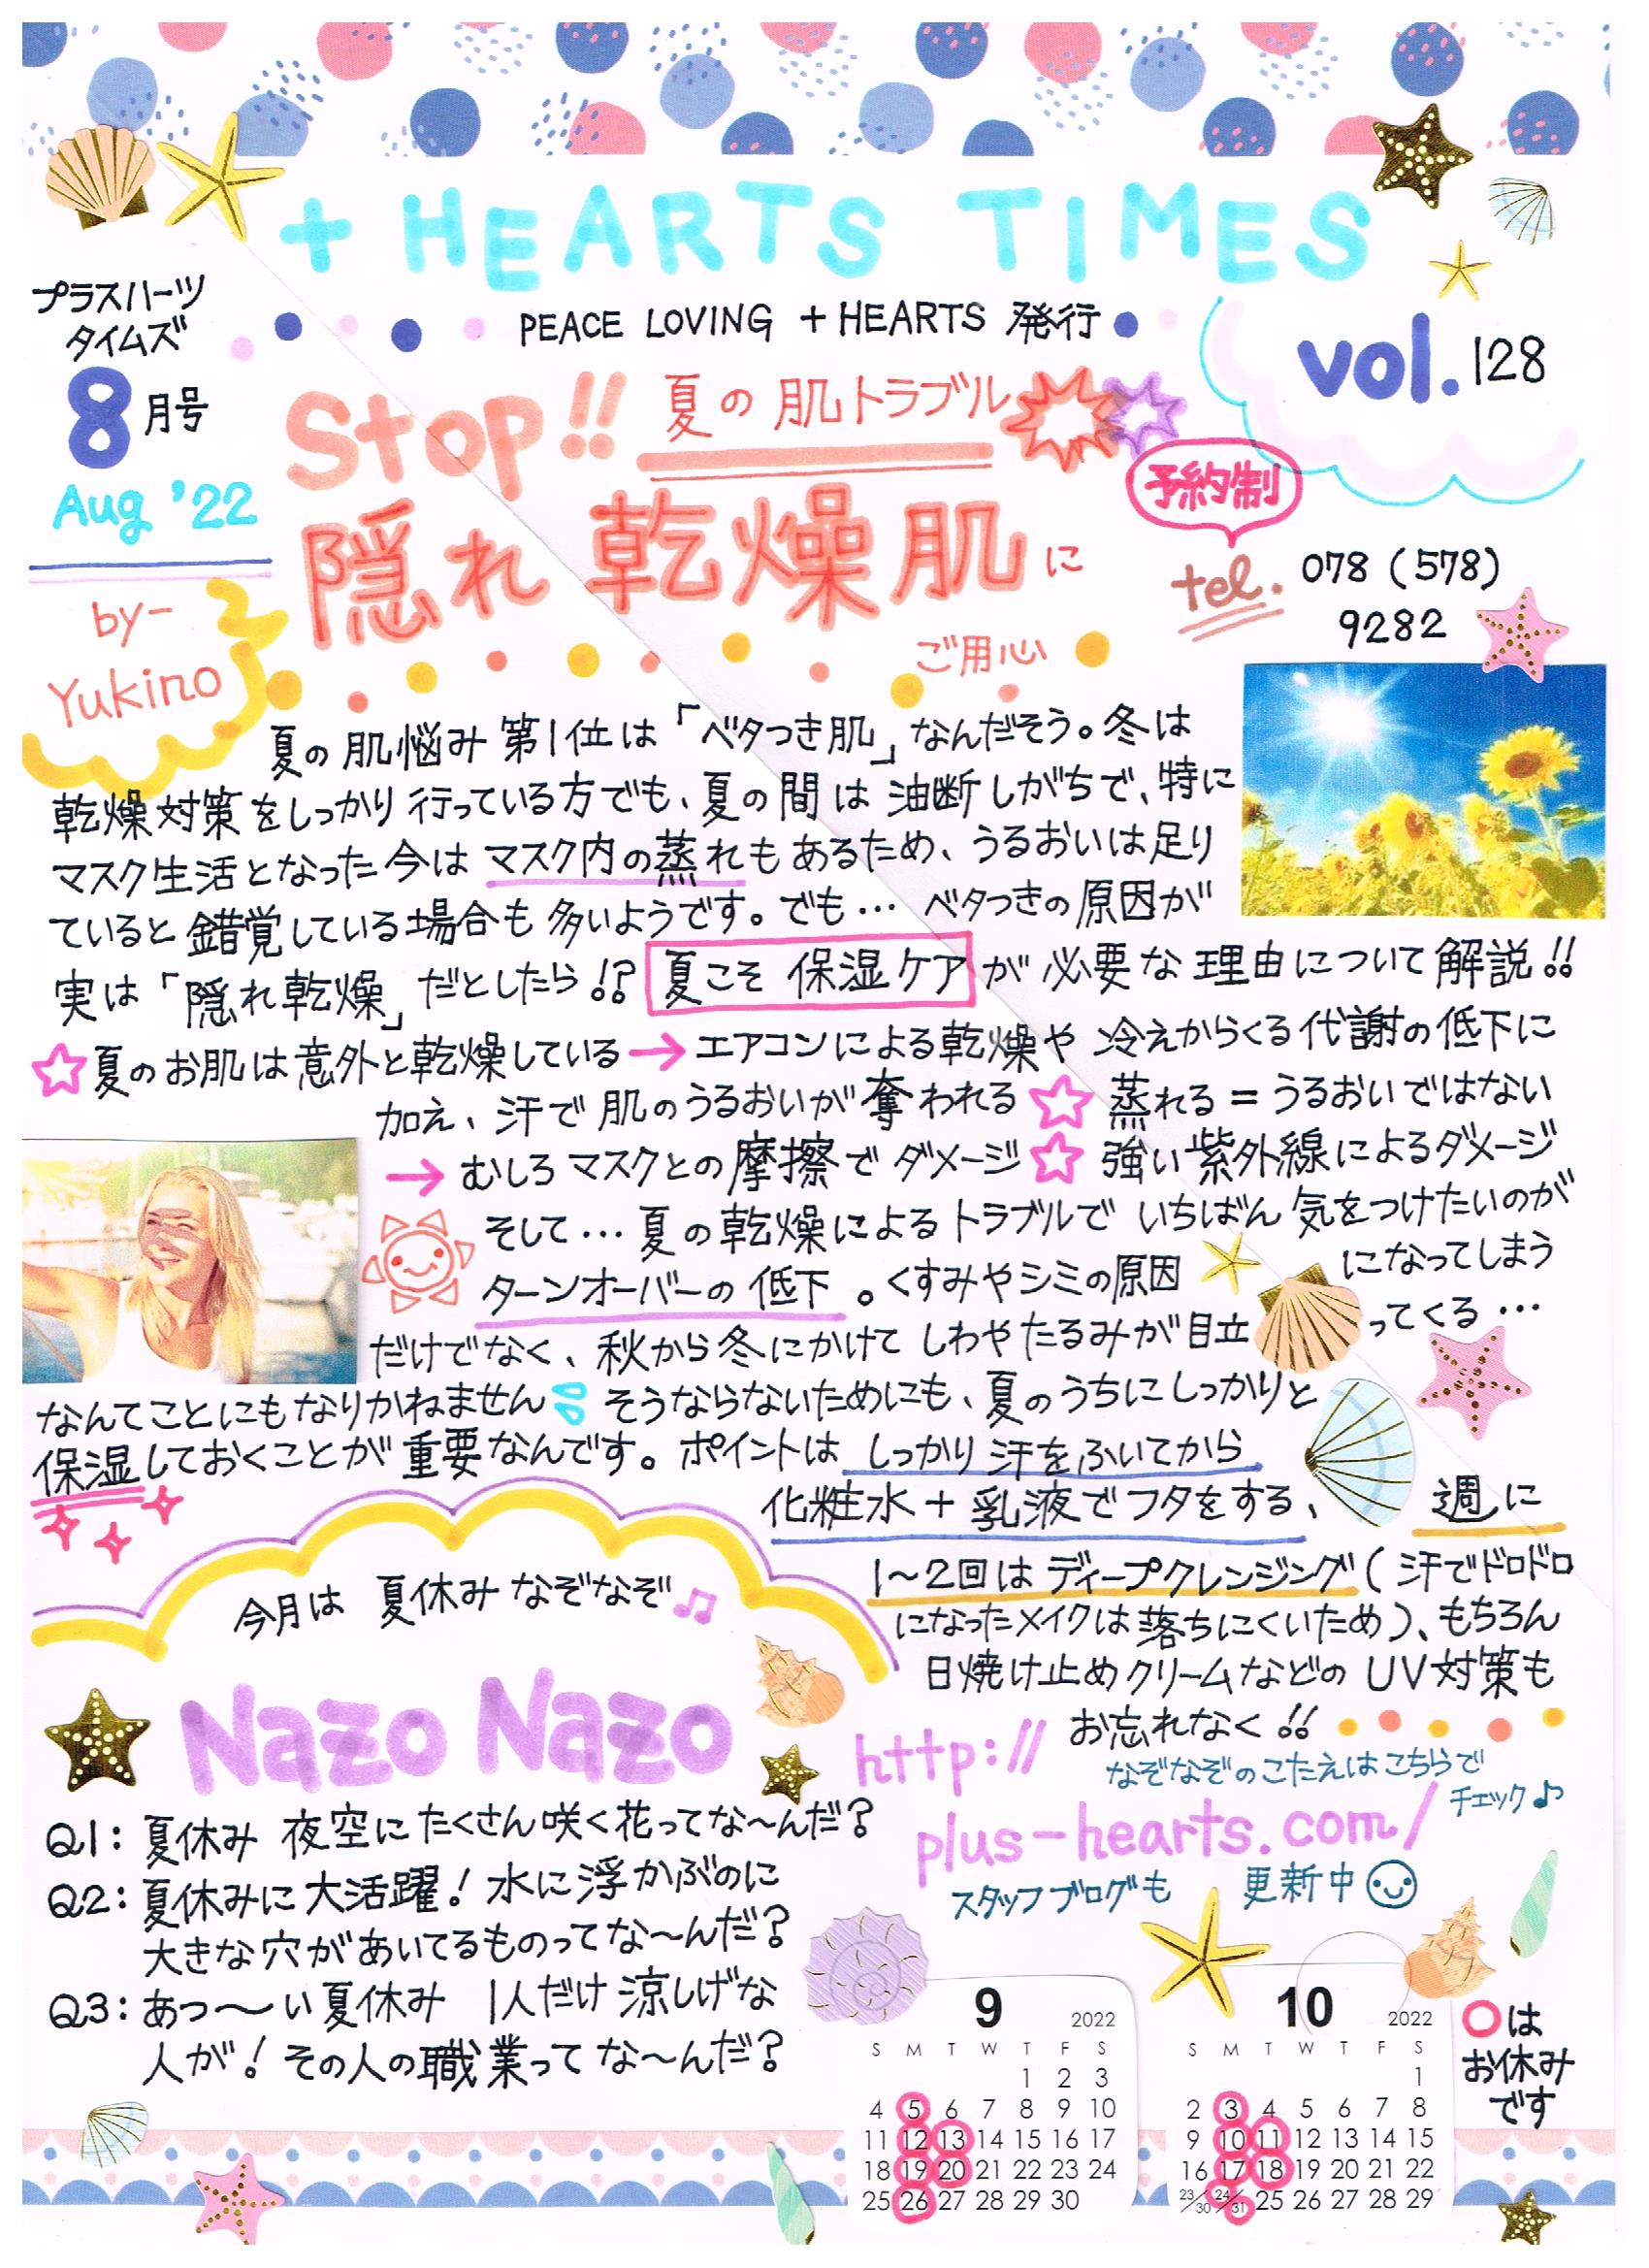 + HEARTS TIMES
プラスハーツ
タイムズ
PEACE LOVING + HEARTS 発行
vol.128
8月号
Aug '22
by-
Yukino
Stop!! 夏の肌トラブル
隠れ乾燥肌に
ご用心
予約制
tel. 078 (578)
9282
夏の肌悩み第1位は「ベタつき肌」なんだそう。冬は
乾燥対策をしっかり行っている方でも、夏の間は油断しがちで、特に
マスク生活となった今はマスク内の蒸れもあるため、うるおいは足り
ていると錯覚している場合も多いようです。でも… ベタつきの原因が
実は「隠れ乾燥」だとしたら!? 夏こそ保湿ケアが必要な理由について解説!!
☆夏のお肌は意外と乾燥している→エアコンによる乾燥や冷えからくる代謝の低下に
加え、汗で肌のうるおいが奪われる☆蒸れる=うるおいではない
→むしろマスクとの摩擦でダメージ☆強い紫外線によるダメージ
そして…夏の乾燥によるトラブルでいちばん気をつけたいのが
ターンオーバーの低下。くすみやシミの原因になってしまう
だけでなく、秋から冬にかけてしわやたるみが目立ってくる…
なんてことにもなりかねません そうならないためにも、夏のうちにしっかりと
保湿しておくことが重要なんです。ポイントはしっかり汗をふいてから
化粧水+乳液でフタをする、週に
1~2回はディープクレンジング(汗でドロドロ
になったメイクは落ちにくいため)、もちろん
日焼け止めクリームなどのUV対策も
お忘れなく!!
今月は夏休みなぞなぞ♫
Nazo Nazo
Q1: 夏休み 夜空にたくさん咲く花ってな~んだ?
Q2: 夏休みに大活躍! 水に浮かぶのに
大きな穴があいてるものってな~んだ?
Q3: あつ~い夏休み 1人だけ涼しげな
人が! その人の職業ってな~んだ?
http://
なぞなぞのこたえはこちらで
チェック♪
plus-hearts.com/
スタッフブログも 更新中
9 2022
S M T W T F S
1 2 3
4 5 6 7 8 9 10
11 12 13 14 15 16 17
18 19 20 21 22 23 24
25 26 27 28 29 30
10 2022
S M T W T F S
1
2 3 4 5 6 7 8
9 10 11 12 13 14 15
16 17 18 19 20 21 22
23/30 24/31 25 26 27 28 29
○は
お休み
です